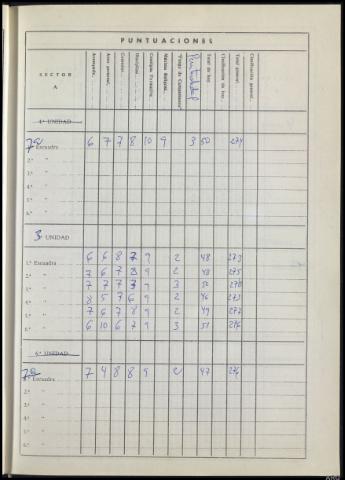 PUNTUACIONES
SECTOR A
Puntualidad
Total de hoy
Clasificación de hoy
Total general
Clasificación general
4.ª UNIDAD
7ª Escuadra 6 7 7 8 10 9 3 50 274
2.ª "
3.ª "
4.ª "
5.ª "
6.ª "
3ª UNIDAD
1.ª Escuadra 6 6 8 7 9 2 48 273
2.ª " 7 6 7 8 9 2 48 275
3.ª " 7 7 7 7 9 3 50 278
4.ª " 8 5 7 6 9 2 46 273
5.ª " 7 6 7 8 9 2 49 277
6.ª " 6 10 6 7 9 3 51 276
6.ª UNIDAD
7ª Escuadra 7 4 8 8 9 2 47 276
2.ª "
3.ª "
4.ª "
5.ª "
6.ª "